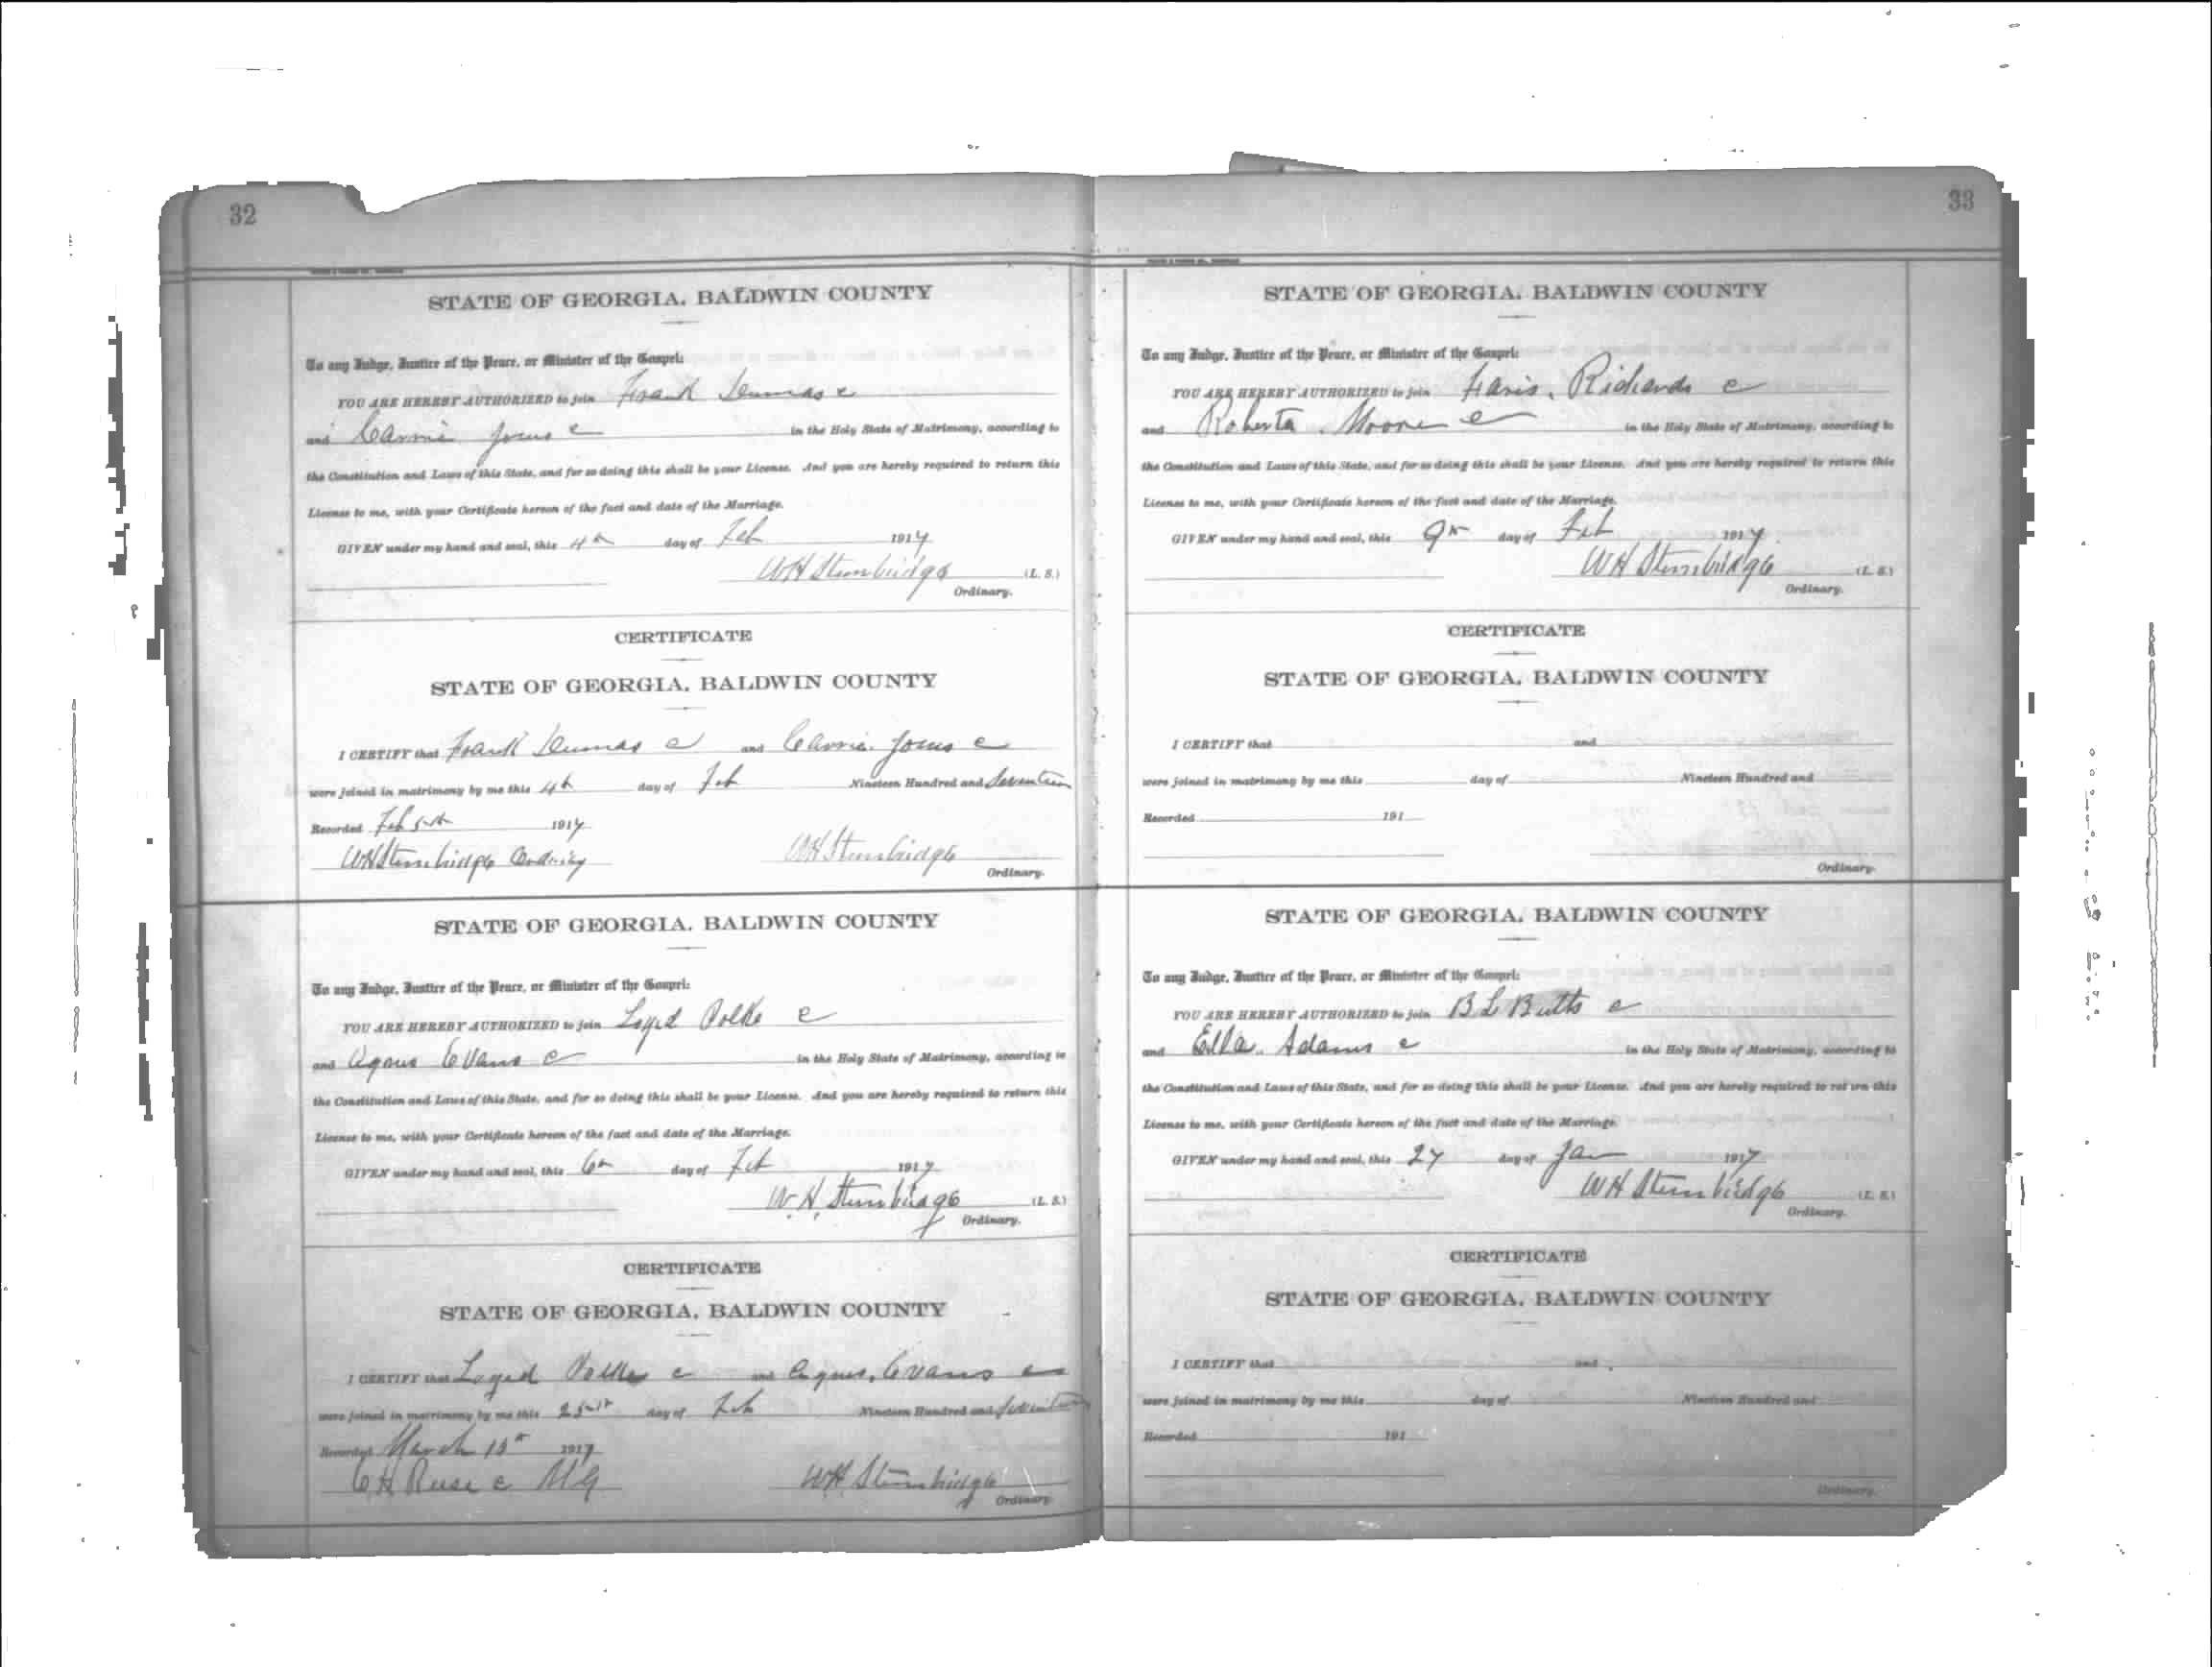 32
STATE OF GEORGIA, BALDWIN COUNTY
To any Judge, Justice of the Peace, or Minister of the Gospel:
YOU ARE HEREBY AUTHORIZED to join Frank Dumas c
and Carrie Jones c in the Holy State of Matrimony, according to
the Constitution and Laws of this State, and for so doing this shall be your License. And you are hereby required to return this
License to me, with your Certificate hereon of the fact and date of the Marriage.
GIVEN under my hand and seal, this 4th day of Feb 1917
WH Stembridge (L. S.)
Ordinary.
CERTIFICATE
STATE OF GEORGIA, BALDWIN COUNTY
I CERTIFY that Frank Dumas c and Carrie Jones c
were joined in matrimony by me this 4th day of Feb Nineteen Hundred and Seventeen
Recorded Feb 5th 1917
WH Stembridge Ordinary WH Stembridge
Ordinary.
STATE OF GEORGIA, BALDWIN COUNTY
To any Judge, Justice of the Peace, or Minister of the Gospel:
YOU ARE HEREBY AUTHORIZED to join Loyed Polke c
and Agnus Evans c in the Holy State of Matrimony, according to
the Constitution and Laws of this State, and for so doing this shall be your License. And you are hereby required to return this
License to me, with your Certificate hereon of the fact and date of the Marriage.
GIVEN under my hand and seal, this 6th day of Feb 1917
W. H. Stembridge (L. S.)
Ordinary.
CERTIFICATE
STATE OF GEORGIA, BALDWIN COUNTY
I CERTIFY that Loyed Polke c and Agnus Evans c
were joined in matrimony by me this 25th day of Feb Nineteen Hundred and Seventeen
Recorded March 1917
C H Reese c MG WH Stembridge
Ordinary
33
STATE OF GEORGIA, BALDWIN COUNTY
To any Judge, Justice of the Peace, or Minister of the Gospel:
YOU ARE HEREBY AUTHORIZED to join Richards c
and Roberta Moore c in the Holy State of Matrimony, according to
the Constitution and Laws of this State, and for so doing this shall be your License. And you are hereby required to return this
License to me, with your Certificate hereon of the fact and date of the Marriage.
GIVEN under my hand and seal, this 9th day of Feb 1917.
WH Stembridge (L. S.)
Ordinary.
CERTIFICATE
STATE OF GEORGIA, BALDWIN COUNTY
I CERTIFY that and
were joined in matrimony by me this day of Nineteen Hundred and
Recorded 191
Ordinary.
STATE OF GEORGIA, BALDWIN COUNTY
To any Judge, Justice of the Peace, or Minister of the Gospel:
YOU ARE HEREBY AUTHORIZED to join B L Butts c
and Ella Adams c in the Holy State of Matrimony, according to
the Constitution and Laws of this State, and for so doing this shall be your License. And you are hereby required to return this
License to me, with your Certificate hereon of the fact and date of the Marriage.
GIVEN under my hand and seal, this 27 day of Jan 1917
WH Stembridge (L. S.)
Ordinary.
CERTIFICATE
STATE OF GEORGIA, BALDWIN COUNTY
I CERTIFY that and
were joined in matrimony by me this day of Nineteen Hundred and
Recorded 191
Ordinary.